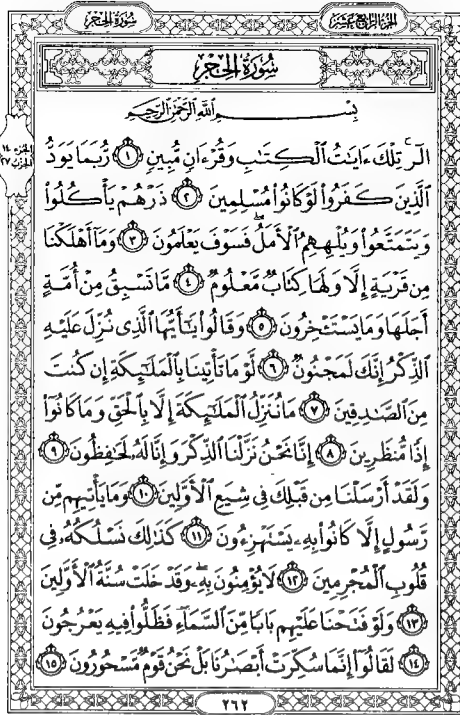 سُورَةُ الحِجْر
الجُزءُ الرَّابِعُ عَشَرَ
سُورَةُ الحِجْر
بِسْمِ اللَّهِ الرَّحْمَٰنِ الرَّحِيمِ
الجزء ١٤
الحزب ٢٧
الٓر ۚ تِلْكَ ءَايَٰتُ ٱلْكِتَٰبِ وَقُرْءَانٍ مُّبِينٍ ۝١ رُّبَمَا يَوَدُّ
ٱلَّذِينَ كَفَرُوا۟ لَوْ كَانُوا۟ مُسْلِمِينَ ۝٢ ذَرْهُمْ يَأْكُلُوا۟
وَيَتَمَتَّعُوا۟ وَيُلْهِهِمُ ٱلْأَمَلُ ۖ فَسَوْفَ يَعْلَمُونَ ۝٣ وَمَآ أَهْلَكْنَا
مِن قَرْيَةٍ إِلَّا وَلَهَا كِتَابٌ مَّعْلُومٌ ۝٤ مَّا تَسْبِقُ مِنْ أُمَّةٍ
أَجَلَهَا وَمَا يَسْتَـْٔخِرُونَ ۝٥ وَقَالُوا۟ يَٰٓأَيُّهَا ٱلَّذِى نُزِّلَ عَلَيْهِ
ٱلذِّكْرُ إِنَّكَ لَمَجْنُونٌ ۝٦ لَّوْ مَا تَأْتِينَا بِٱلْمَلَٰٓئِكَةِ إِن كُنتَ
مِنَ ٱلصَّٰدِقِينَ ۝٧ مَا نُنَزِّلُ ٱلْمَلَٰٓئِكَةَ إِلَّا بِٱلْحَقِّ وَمَا كَانُوٓا۟
إِذًا مُّنظَرِينَ ۝٨ إِنَّا نَحْنُ نَزَّلْنَا ٱلذِّكْرَ وَإِنَّا لَهُۥ لَحَٰفِظُونَ ۝٩
وَلَقَدْ أَرْسَلْنَا مِن قَبْلِكَ فِى شِيَعِ ٱلْأَوَّلِينَ ۝١٠ وَمَا يَأْتِيهِم مِّن
رَّسُولٍ إِلَّا كَانُوا۟ بِهِۦ يَسْتَهْزِءُونَ ۝١١ كَذَٰلِكَ نَسْلُكُهُۥ فِى
قُلُوبِ ٱلْمُجْرِمِينَ ۝١٢ لَا يُؤْمِنُونَ بِهِۦ ۖ وَقَدْ خَلَتْ سُنَّةُ ٱلْأَوَّلِينَ
۝١٣ وَلَوْ فَتَحْنَا عَلَيْهِم بَابًا مِّنَ ٱلسَّمَآءِ فَظَلُّوا۟ فِيهِ يَعْرُجُونَ
۝١٤ لَقَالُوٓا۟ إِنَّمَا سُكِّرَتْ أَبْصَٰرُنَا بَلْ نَحْنُ قَوْمٌ مَّسْحُورُونَ ۝١٥
٢٦٢